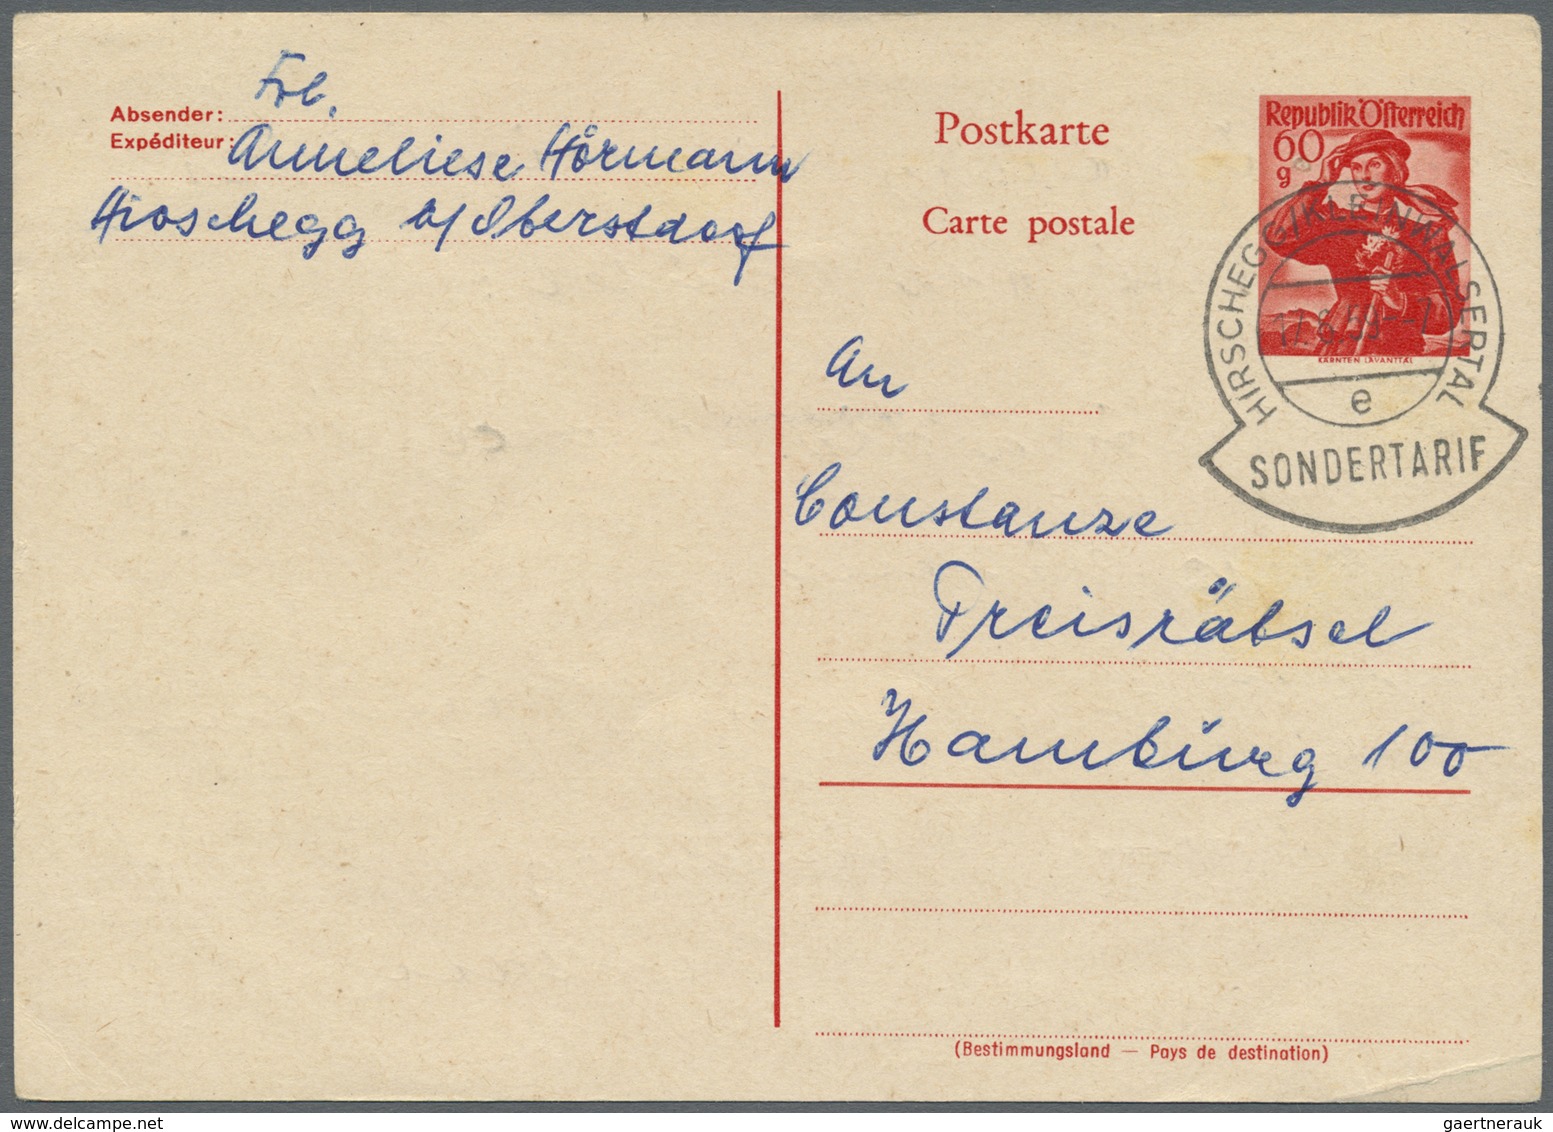 Frl.
Absender:
Expéditeur: Anneliese Hörmann
Hirschegg b/Oberstdorf
Postkarte
Carte postale
Republik Österreich
60
g
KÄRNTEN LAVANTTAL
HIRSCHEGG/KLEINWALSERTAL
e
SONDERTARIF
An
Constanze
Preisrätsel
Hamburg 100
(Bestimmungsland — Pays de destination)
delcampe.net
gaertnerauk